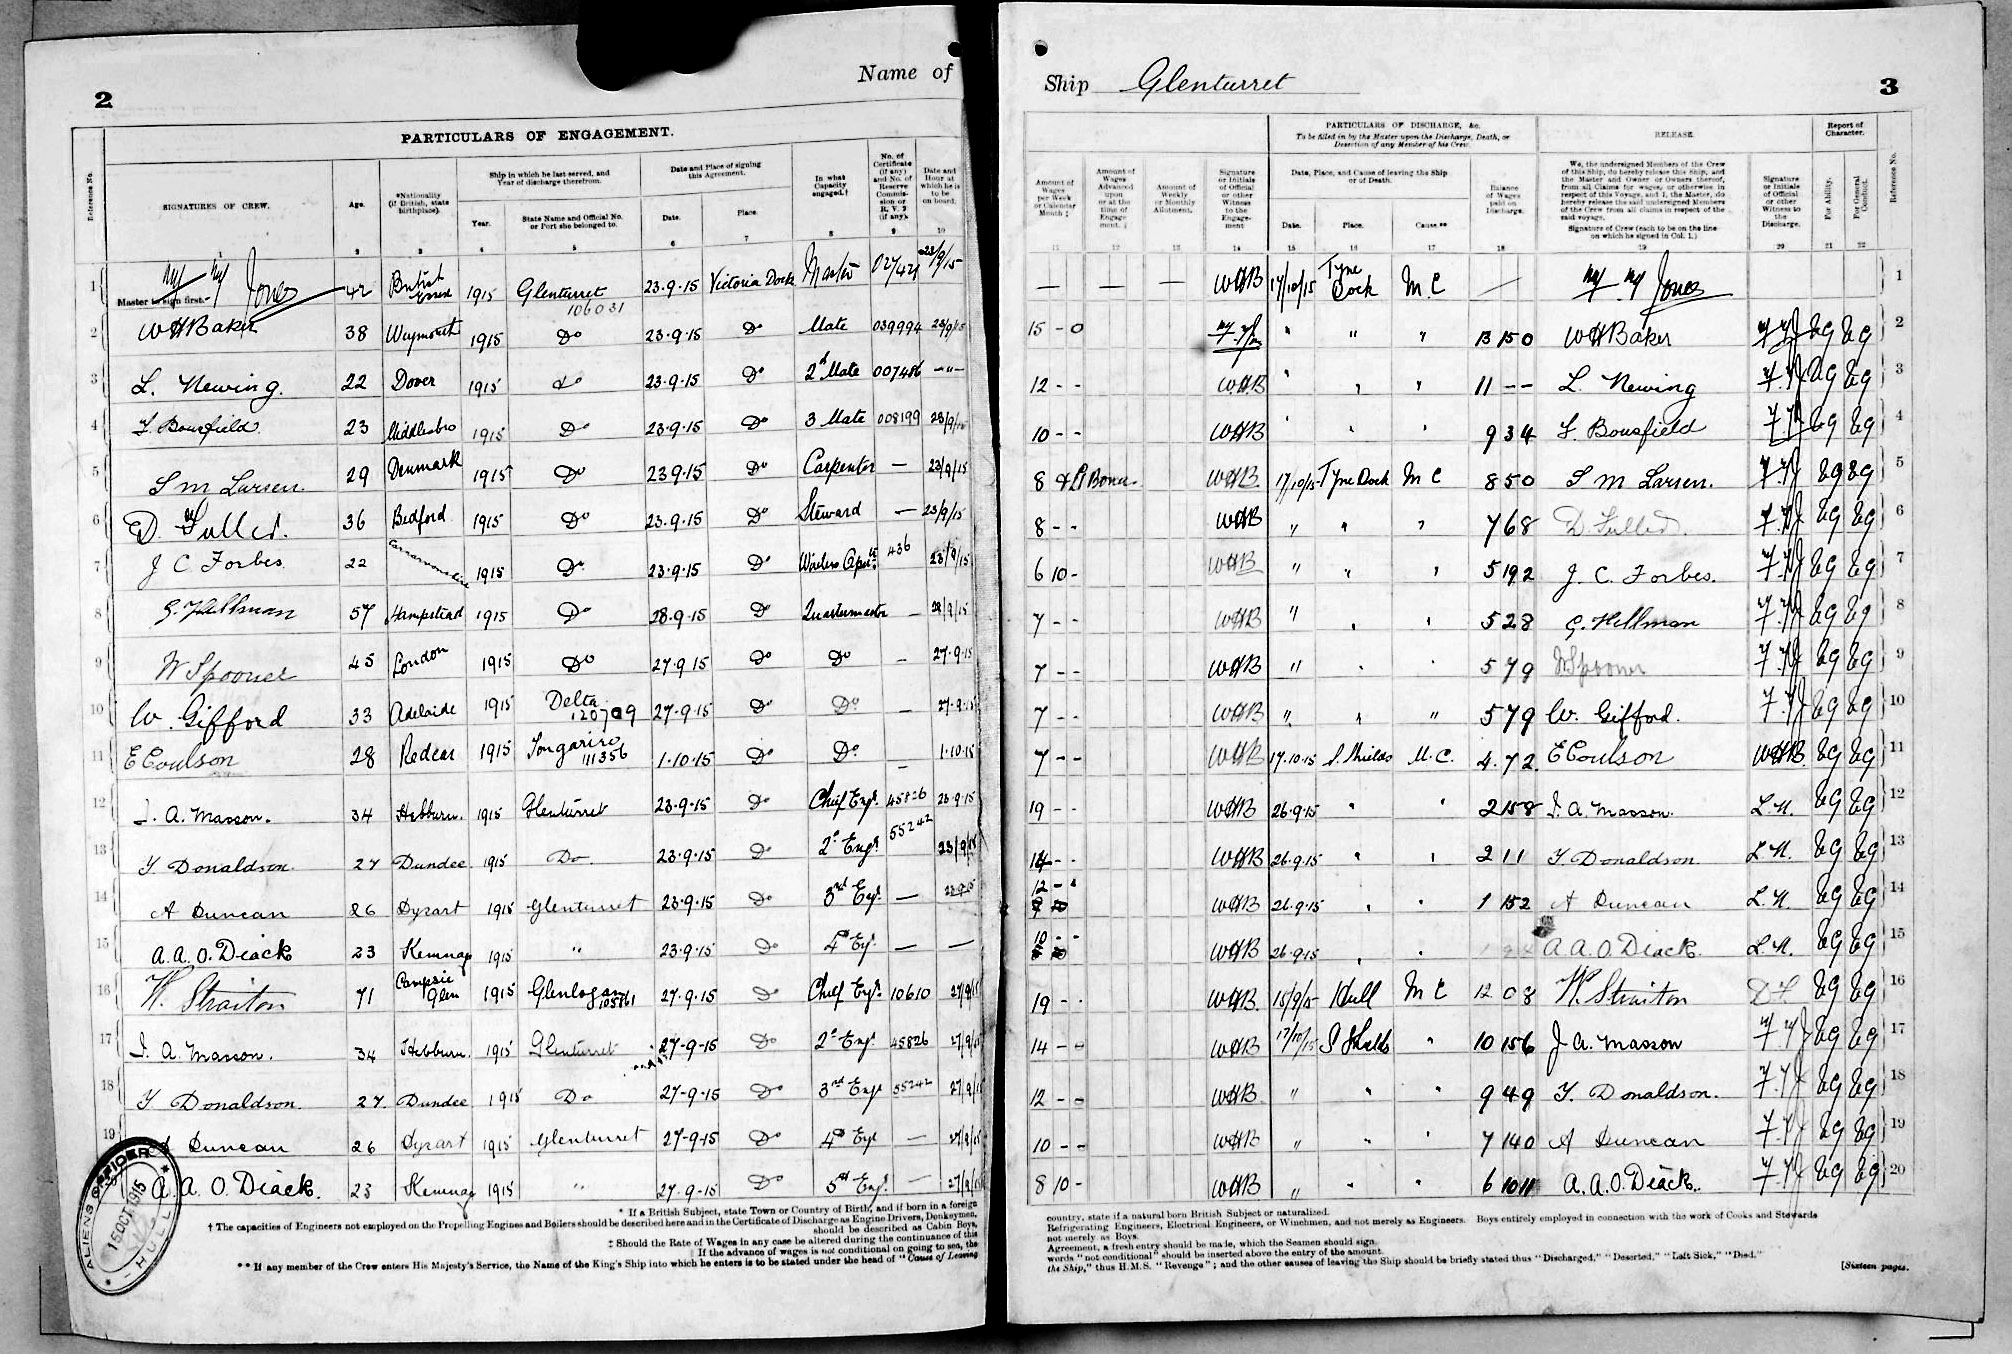 2
Name of
PARTICULARS OF ENGAGEMENT.
Reference No.
SIGNATURES OF CREW.
Age.
*Nationality (if British, state birthplace).
Ship in which he last served, and Year of discharge therefrom.
Year.
State Name and Official No. or Port she belonged to.
Date and Place of signing this Agreement.
Date.
Place.
In what Capacity engaged.†
No. of Certificate (if any) and No. of Reserve Commission or R.V.2 (if any).
Date and Hour at which he is to be on board.
1 2 3 4 5 6 7 8 9 10
1 Master to sign first. Jones 42 British 1915 Glenturret 106031 23.9.15 Victoria Dock Master 027421 23/9/15
2 WHBaker 38 Weymouth 1915 Do 23.9.15 Do Mate 039994 23/9/15
3 L. Newing. 22 Dover 1915 do 23.9.15 Do 2d Mate 007486 -"-
4 Bousfield 23 Middlesbro 1915 Do 23.9.15 Do 3 Mate 008199 23/9/15
5 S M Larsen. 29 Denmark 1915 Do 23.9.15 Do Carpenter — 23/9/15
6 D. Fuller. 36 Bedford 1915 Do 23.9.15 Do Steward — 23/9/15
7 J C Forbes 22 Carnarvonshire 1915 Do 23.9.15 Do 436 23/9/15
8 G. Hillman 57 Hampstead 1915 Do 28.9.15 Do Quartermaster — 28/9/15
9 W Spooner 45 London 1915 Do 27.9.15 Do Do — 27.9.15
10 W. Gifford 33 Adelaide 1915 Delta 120709 27.9.15 Do Do — 27.9.15
11 E Coulson 28 Redcar 1915 Tongariro 111356 1.10.15 Do Do — 1.10.15
12 J. A. Masson. 34 Hebburn. 1915 Glenturret 23.9.15 Do Chief Engr. 45826 23.9.15
13 T Donaldson. 27 Dundee 1915 Do 23.9.15 Do 2d Engr. 55242 23/9/15
14 A Duncan 26 Dysart 1915 Glenturret 23.9.15 Do 3rd Egr. — 23.9.15
15 A. A. O. Diack 23 Kemnay 1915 " 23.9.15 Do 4th Egr. — —
16 W. Straiton 71 Campsie Glen 1915 Glenlogan 27.9.15 Do Chief Egr. 10610 27/9/15
17 J. A. Masson. 34 Hebburn. 1915 Glenturret 27-9-15 Do 2d Engr 45826 27/9/15
18 T Donaldson. 27. Dundee 1915 Do 27-9-15 Do 3rd Engr 55242 27/9/15
19 A Duncan 26 Dysart 1915 Glenturret 27-9-15 Do 4th Egr — 27/9/15
A. A. O. Diack. 23 Kemnay 1915 " 27.9.15 Do 5th Engr. — 27/9/15
ALIENS OFFICER
15 OCT 1915
HULL
* If a British Subject, state Town or Country of Birth, and if born in a foreign
† The capacities of Engineers not employed on the Propelling Engines and Boilers should be described here and in the Certificate of Discharge as Engine Drivers, Donkeymen,
should be described as Cabin Boys,
‡ Should the Rate of Wages in any case be altered during the continuance of this
|| If the advance of wages is not conditional on going to sea, the
** If any member of the Crew enters His Majesty's Service, the Name of the King's Ship into which he enters is to be stated under the head of "Cause of Leaving
Ship Glenturret
3
PARTICULARS OF DISCHARGE, &c.
To be filled in by the Master upon the Discharge, Death, or Desertion of any Member of his Crew.
RELEASE.
Report of Character.
Amount of Wages per Week or Calendar Month ‡
Amount of Wages Advanced upon or at the time of Engagement. ||
Amount of Weekly or Monthly Allotment.
Signature or Initials of Official or other Witness to the Engagement
Date, Place, and Cause of leaving the Ship or of Death.
Date.
Place.
Cause.**
Balance of Wages paid on Discharge.
We, the undersigned Members of the Crew of this Ship, do hereby release this Ship, and the Master and Owner or Owners thereof, from all Claims for wages, or otherwise in respect of this Voyage, and I, the Master, do hereby release the said undersigned Members of the Crew from all claims in respect of the said voyage.
Signature of Crew (each to be on the line on which he signed in Col. 1.)
Signature or Initials of Official or other Witness to the Discharge.
For Ability.
For General Conduct.
Reference No.
11 12 13 14 15 16 17 18 19 20 21 22
— — — WHB 17/10/15 Tyne Dock M.C — Jones 1
15 - 0 " " " 13 15 0 WHBaker VG VG 2
12 - - W.H.B " " " 11 - - L Newing VG VG 3
10 - - WHB " " " 9 3 4 Bousfield VG VG 4
8 WHB. 17/10/15 Tyne Dock M C 8 5 0 S M Larsen. VG VG 5
8 - - WHB " " " 7 6 8 D. Fuller. VG VG 6
6 10 - WHB " " " 5 19 2 J. C. Forbes. VG VG 7
7 - - WHB " " " 5 2 8 G. Hillman VG VG 8
7 - - WHB " " " 5 7 9 W Spooner VG VG 9
7 - - WHB " " " 5 7 9 W. Gifford. VG VG 10
7 - - WHB 17.10.15 S. Shields M.C. 4. 7 2. E Coulson WHB. VG VG 11
19 - - WHB 26.9.15 " " 2 15 8 J. A. Masson. L.N. VG VG 12
14 - - WHB 26.9.15 " " 2 1 1 T Donaldson L.N. VG VG 13
12 - - WHB 26.9.15 " " 1 15 2 A Duncan L.N. VG VG 14
10 - - WHB 26.9.15 " " A A O. Diack. L.N. VG VG 15
19 - - WHB. 15/9/15 Hull M C 12 0 8 W. Straiton VG VG 16
14 - - WHB 17/10/15 S Shields " 10 15 6 J A. Masson VG VG 17
12 - - WHB " " " 9 4 9 T. Donaldson. VG VG 18
10 - - WHB " " " 7 14 0 A Duncan VG VG 19
8 10 - WHB " " " 6 10 11 A. A. O. Diack. VG VG 20
country, state if a natural born British Subject or naturalised.
Refrigerating Engineers, Electrical Engineers, or Winchmen, and not merely as Engineers. Boys entirely employed in connection with the work of Cooks and Stewards
not merely as Boys.
Agreement, a fresh entry should be made, which the Seamen should sign.
words "not conditional" should be inserted above the entry of the amount.
the Ship," thus H.M.S. "Revenge"; and the other causes of leaving the Ship should be briefly stated thus "Discharged," "Deserted," "Left Sick," "Died."
[Sixteen pages.